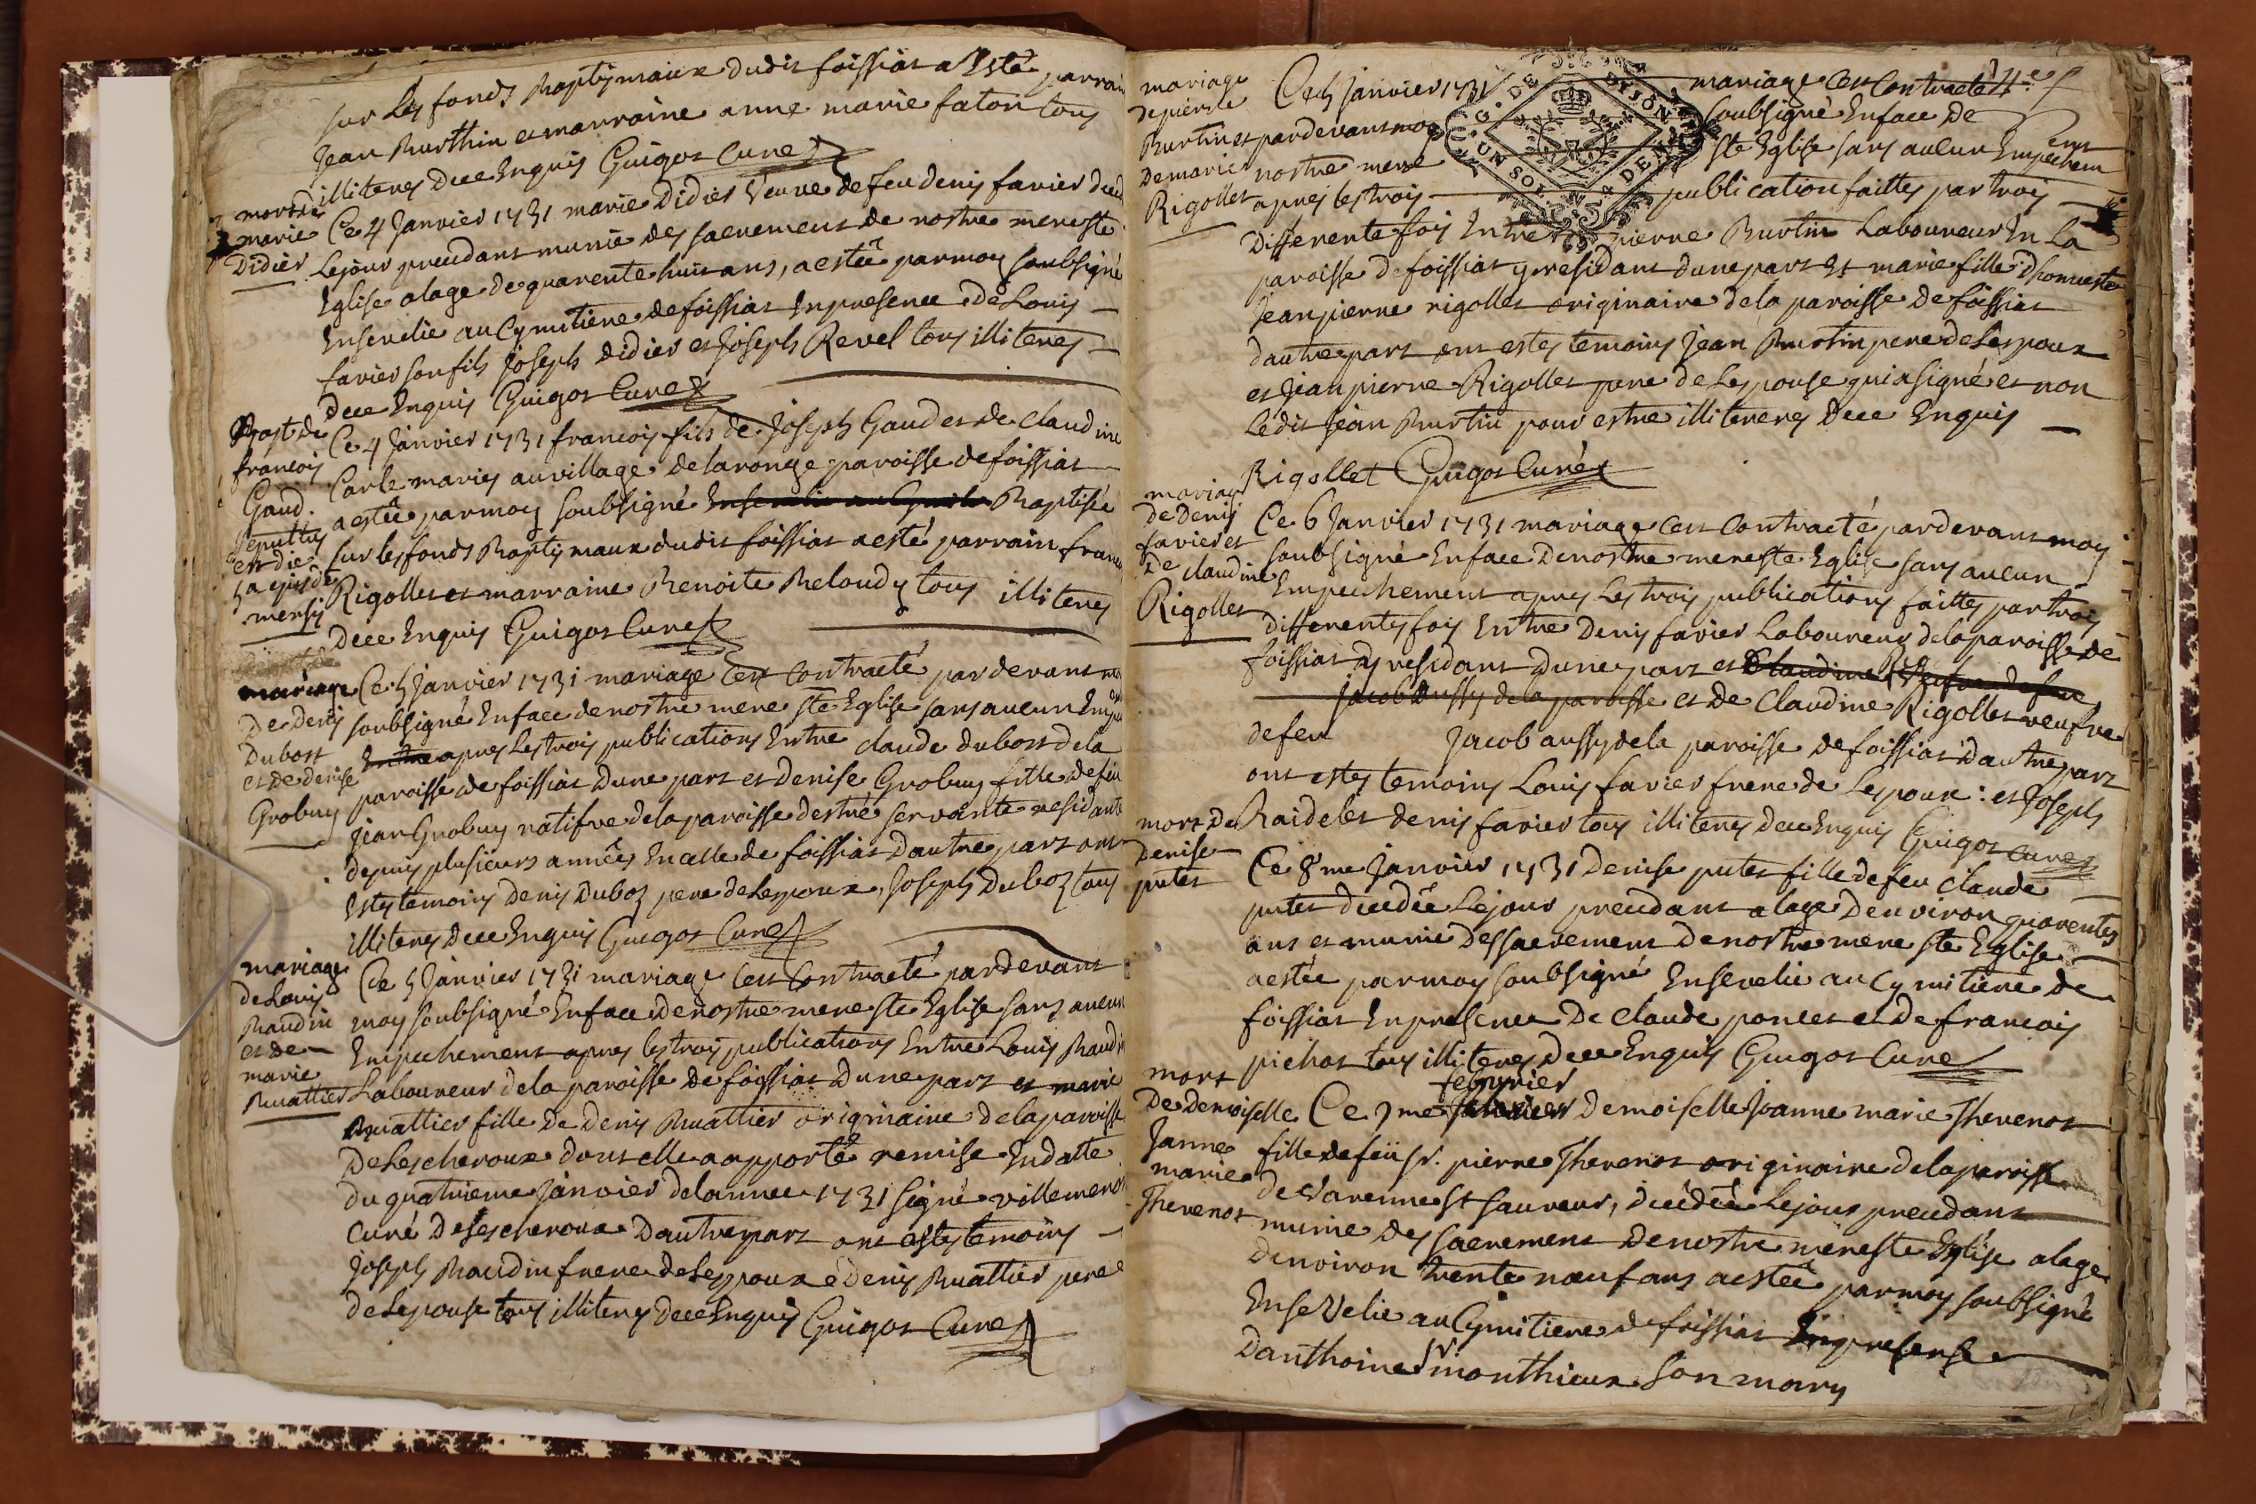 sur les fonds Baptismaux dudit foissiat a Esté parrain
Jean Burthin et marraine anne marie faton tous
illiteres Dece Enquis Guigot Curé
mort de
marie
Didier
Ce 4 Janvier 1731 marie Didier veuve de feu denis favier deced
Lejour precedant munie des sacrement de nostre mere ste
Eglise alage de quarente huit ans, a estée par moy soubsigné
Ensevelie au Cymitiere de foissiat En presence De Louis
favier son fils Joseph didier et Joseph Revel tous illiteres
Dece Enquis Guigot Curé
Bapt. de
francois
Gaud.
Ce 4 Janvier 1731 francois fils de Joseph Gaud et de Claudine
Carle maries au village de laronge paroisse de foissiat
a estée par moy soubsigné Ensevelie au Baptisée
sur les fonds Baptismaux dudit foissiat a esté parrain francois
Rigollet et marraine Benoite Beloudy tous illiteres
Dece Enquis Guigot Curé
mariage
De denis
Dubost
et de denise
Grobuy
Ce 5 Janvier 1731 mariage cest Contracté par devant moy
soubsigné Enface de nostre mere ste Eglise sans aucun Empe
Entre apres les trois publications Entre claude dubost dela
paroisse de foissiat Dune part et denise Grobuy fille de feu
Jean Grobuy natifve dela paroisse destré servante residante
depuis plusieurs années En celle de foissiat dautre part ont
Estes temoins Denis Duboz pere de Lespoux, Joseph Duboz tous
illiteres Dece Enquis Guigot Curé
mariage
de Louis
Baudin
et de
marie
Buattier
Ce 5 Janvier 1731 mariage cest Contracté par devant
moy soubsigné Enface de nostre mere ste Eglise sans aucun
Empechement apres les trois publications Entre Louis Baudin
Laboureur dela paroisse de foissiat Dune part et marie
Buattier fille De Denis Buattier originaire dela paroisse
De Lescheroux dont elle a apporté remise En datte
du quatrieme Janvier delannee 1731 signé villemenot
Curé De Lescheroux Dautre part ont Estes temoins
Joseph Baudin frere de Lespoux et Denis Buattier pere
de Lespouse tous illiteres Dece Enquis Guigot Curé
mariage
de pierre
Burtin et
De marie
Rigollet
Ce 5 Janvier 1731 mariage cest Contracté
par devant moy soubsigné Enface De
nostre mere ste Eglise sans aucun Empechem
ent
apres les trois publication faittes par trois
Differente fois Entre pierre Burtin Laboureur En La
paroisse de foissiat y residant dune part et marie fille dhonneste
Jean pierre rigollet originaire dela paroisse De foissiat
dautre part ont estes temoins Jean Burtin pere de Lespoux
et Jean pierre Rigollet pere de Lespouse qui a signé et non
Ledit Jean Burtin pour estre illiteres Dece Enquis
Rigollet Guigot Curé
mariage
de Denis
favier et
De claudine
Rigollet
Ce 6 Janvier 1731 mariage cest Contracté par devant moy
soubsigné Enface De nostre mere ste Eglise sans aucun
Empechement apres Les trois publications faittes par trois
differentes fois Entre Denis favier Laboureur de la paroisse de
foissiat y residant Dune part et Claudine
Jacob aussy de la paroisse et De Claudine Rigollet veufve
de feu Jacob aussy dela paroisse de foissiat dautre part
ont estes temoins Louis favier frere de Lespoux : et Joseph
Raidelet denis favier tous illiteres dece Enquis Guigot Curé
mort de
Denise
putet
Ce 8me Janvier 1731 Denise putet fille de feu Claude
putet decedée Lejour precedant alage Denviron quarentes
ans et munie Des sacrement De nostre mere ste Eglise
a estée par moy soubsigné Ensevelie au Cymitiere de
foissiat En presence De Claude poncet et de francois
pichat tous illiteres Dece Enquis Guigot Curé
mort
De demoiselle
Janne
marie
Thevenot
febvrier
Ce 7me Janvier Demoiselle Joanne marie Thevenot
fille de feu sr. pierre Thevenot originaire dela paroisse
de varenne st sauveur, decedée Lejour precedant
munie des sacrement De nostre mere ste Eglise alage
denviron trente neuf ans a estée par moy soubsigné
Ensevelie au Cymitiere de foissiat En presense
Danthoine sr monthieux son mary